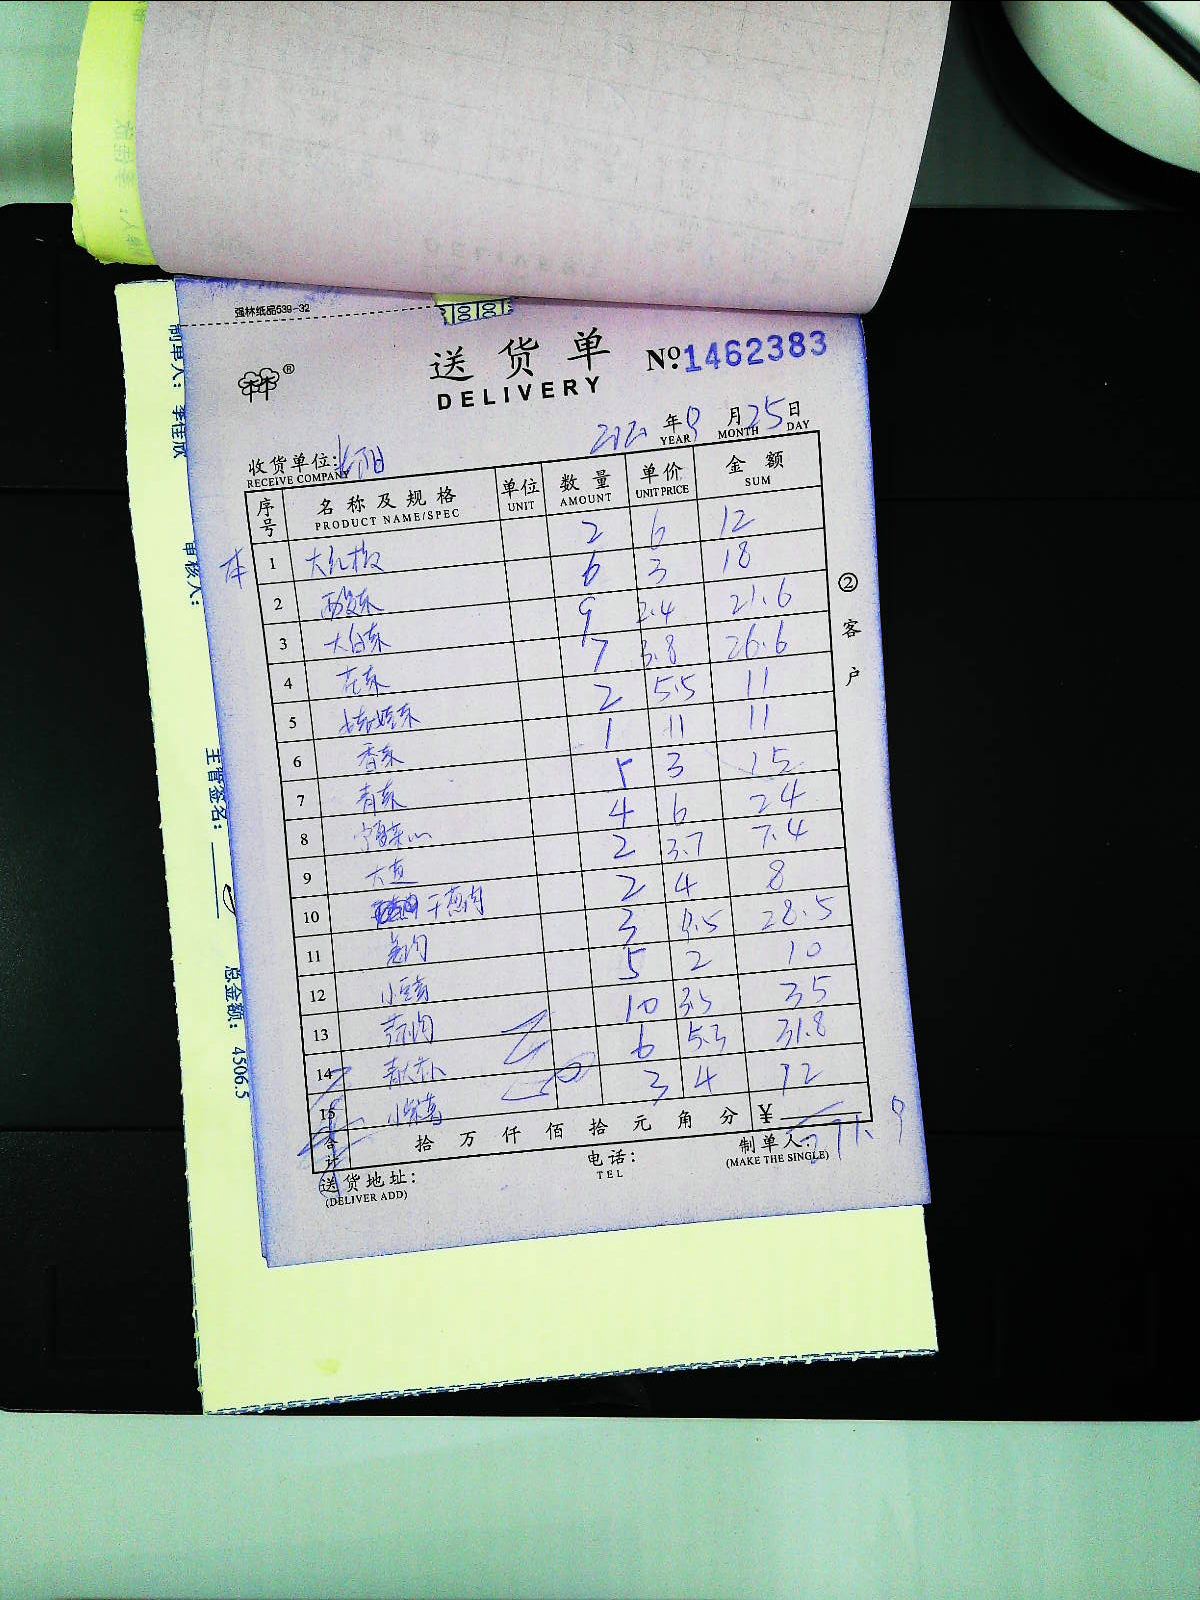 强林纸品539-32
送货单 №1462383
DELIVERY
年9月25日
YEAR MONTH DAY
收货单位:
RECEIVE COMPANY
序号 名称及规格 单位 数量 单价 金额
PRODUCT NAME/SPEC UNIT AMOUNT UNIT PRICE SUM
1 大红椒 2 6 12
2 菠菜 6 3 18
3 大白菜 9 2.4 21.6
4 花菜 7 3.8 26.6
5 2 5.5 11
6 香菜 1 11 11
7 青菜 5 3 15
8 菜心 4 6 24
9 大 2 3.7 7.4
10 干葱肉 2 4 8
11 3 9.5 28.5
12 小 5 2 10
13 10 3.5 35
14 6 5.3 31.8
15 小 3 4 12
合计 拾万仟佰拾元角分 ¥ 271.9
送货地址: 电话: 制单人:
(DELIVER ADD) TEL (MAKE THE SINGLE)
②客户
制单人: 李佳欣
审核人:
主管签名:
总金额: 4506.5